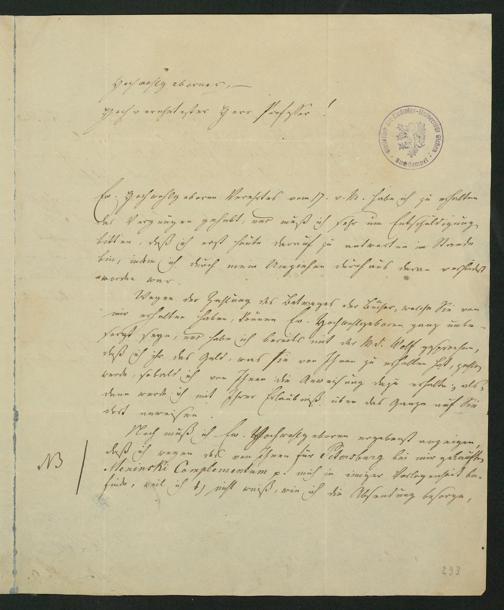 Hochwohlgeborner,
Hochverehrtester Herr Professor!
Ew. Hochwohlgeboren Verehrtes vom 17. v. M. habe ich zu erhalten
das Vergnügen gehabt, und muß ich sehr um Entschuldigung
bitten, daß ich erst heute darauf zu antworten im Stande
bin, indem ich durch mein Umziehen durchaus daran verhindert
worden war.
Wegen der Zahlung des Betrages der Bücher, welche Sie von
mir erhalten haben, können Ew. Hochwohlgeboren ganz unbe-
sorgt seyn, und habe ich bereits mit der Md. Wolf gesprochen,
daß ich ihr das Geld, was sie von Ihnen zu erhalten hat, zahlen
werde, sobald ich von Ihnen die Anweisung dazu erhalte, als-
dann werde ich mit Ihrer Erlaubniß über das Ganze auf Sie
dort anweisen.
Noch muß ich Ew. Hochwohlgeboren ergebenst anzeigen,
NB
daß ich wegen des von Ihnen für Petersburg bei mir gekauften
Meninski Complementum p. mich in einiger Verlegenheit be-
finde, weil ich 1, nicht weiß, wie ich die Absendung besorge,
293